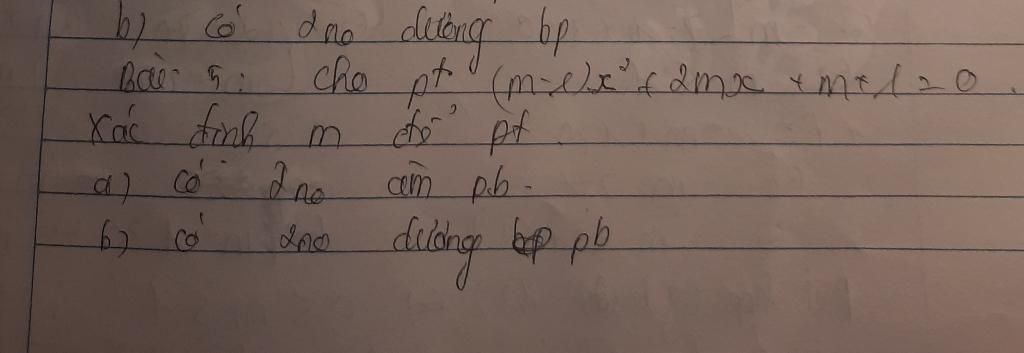 b) có 2no dương bp
Bài 5: cho pt (m-1)x² + 2mx + m+1 = 0.
Xác định m để pt
a) có 2no âm p.b.
b) có 2no dương pb